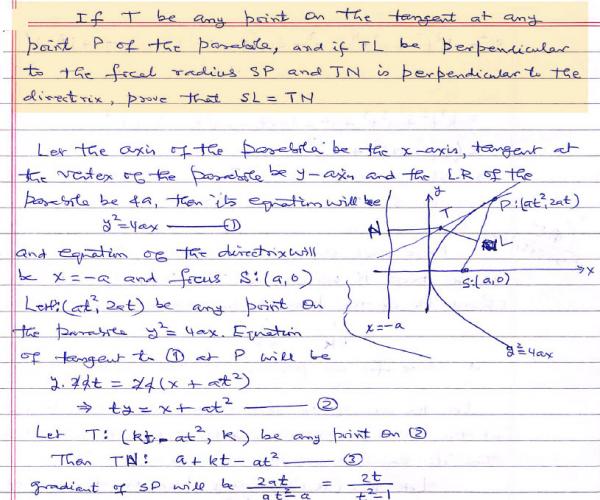 If T be any point on the tangent at any
point P of the parabola, and if TL be perpendicular
to the focal radius SP and TN is perpendicular to the
directrix, prove that SL = TN
Let the axis of the parabola be the x-axis, tangent at
the vertex of the parabola be y-axis and the LR of the
parabola be 4a, then its equation will be
y²=4ax ——— ①
and equation of the directrix will
be x=-a and focus S:(a,0)
Let P:(at², 2at) be any point on
the parabola y²=4ax. Equation
of tangent to ① at P will be
y.2at = 2a(x + at²)
⇒ ty = x + at² ——— ②
Let T: (kt-at², k) be any point on ②
Then TN: a+kt-at² ——— ③
gradient of SP will be 2at/at²-a = 2t/t²-1
y
P:(at², 2at)
T
N
L
S:(a,0)
x
x=-a
y²=4ax